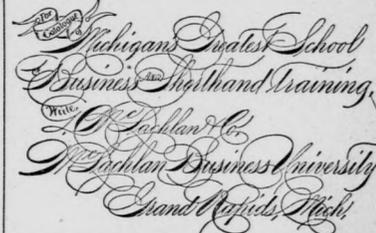 For Catalogue of
Michigans Greatest School
of Business and Shorthand Training,
Write,
D. McLachlan & Co.
McLachlan Business University
Grand Rapids, Mich.